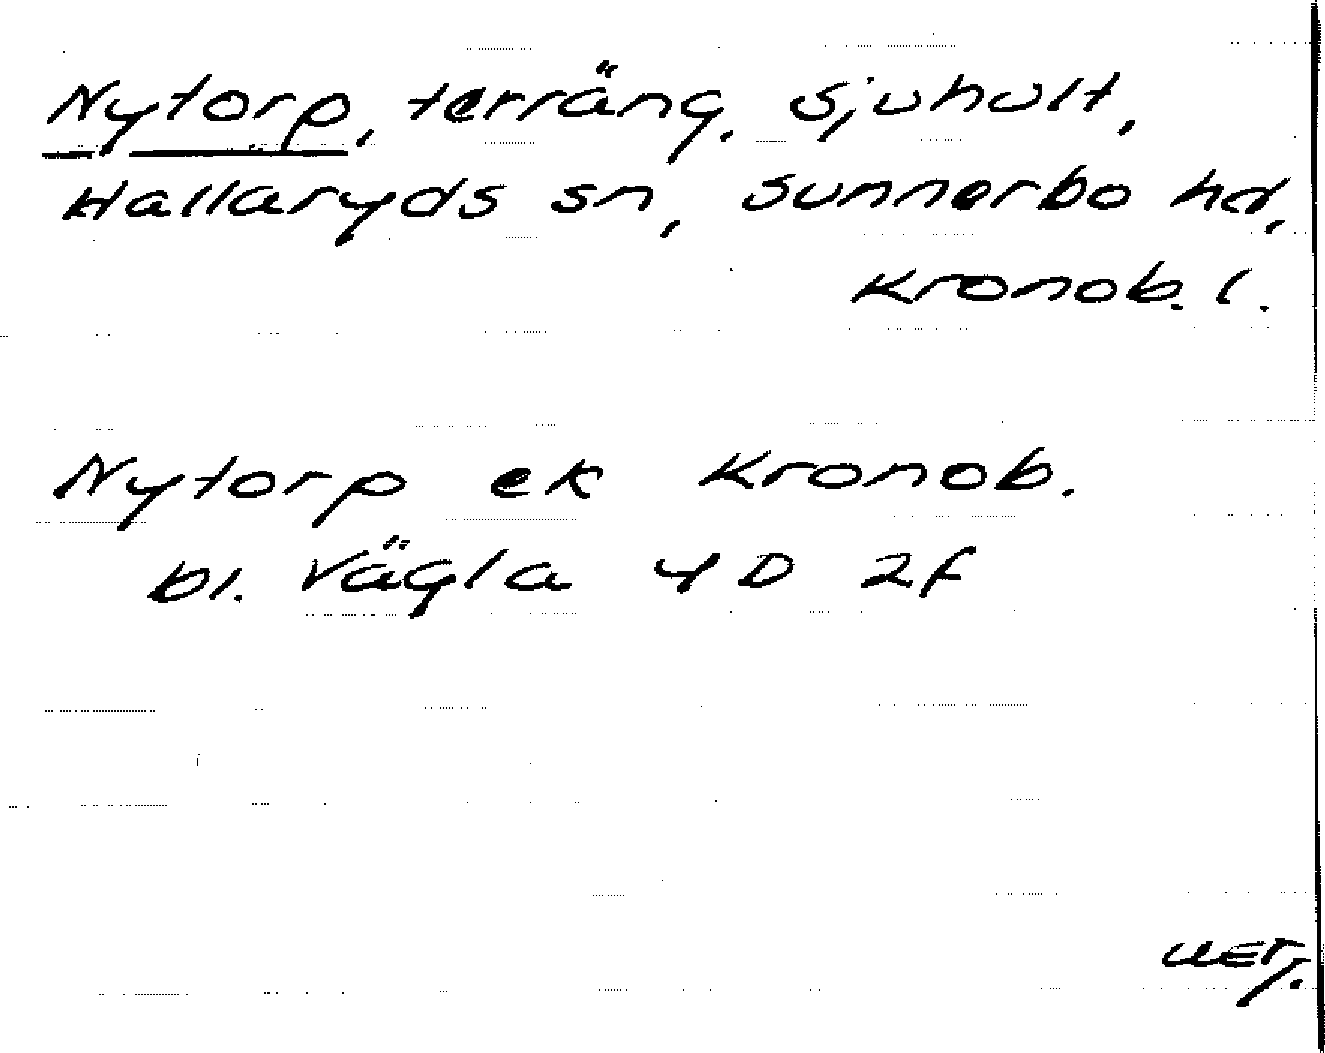 Nytorp, terräng, Sjuhult,
Hallaryds sn, Sunnerbo hd,
Kronob. l.
Nytorp ek Kronob.
bl. Vägla 4D 2f